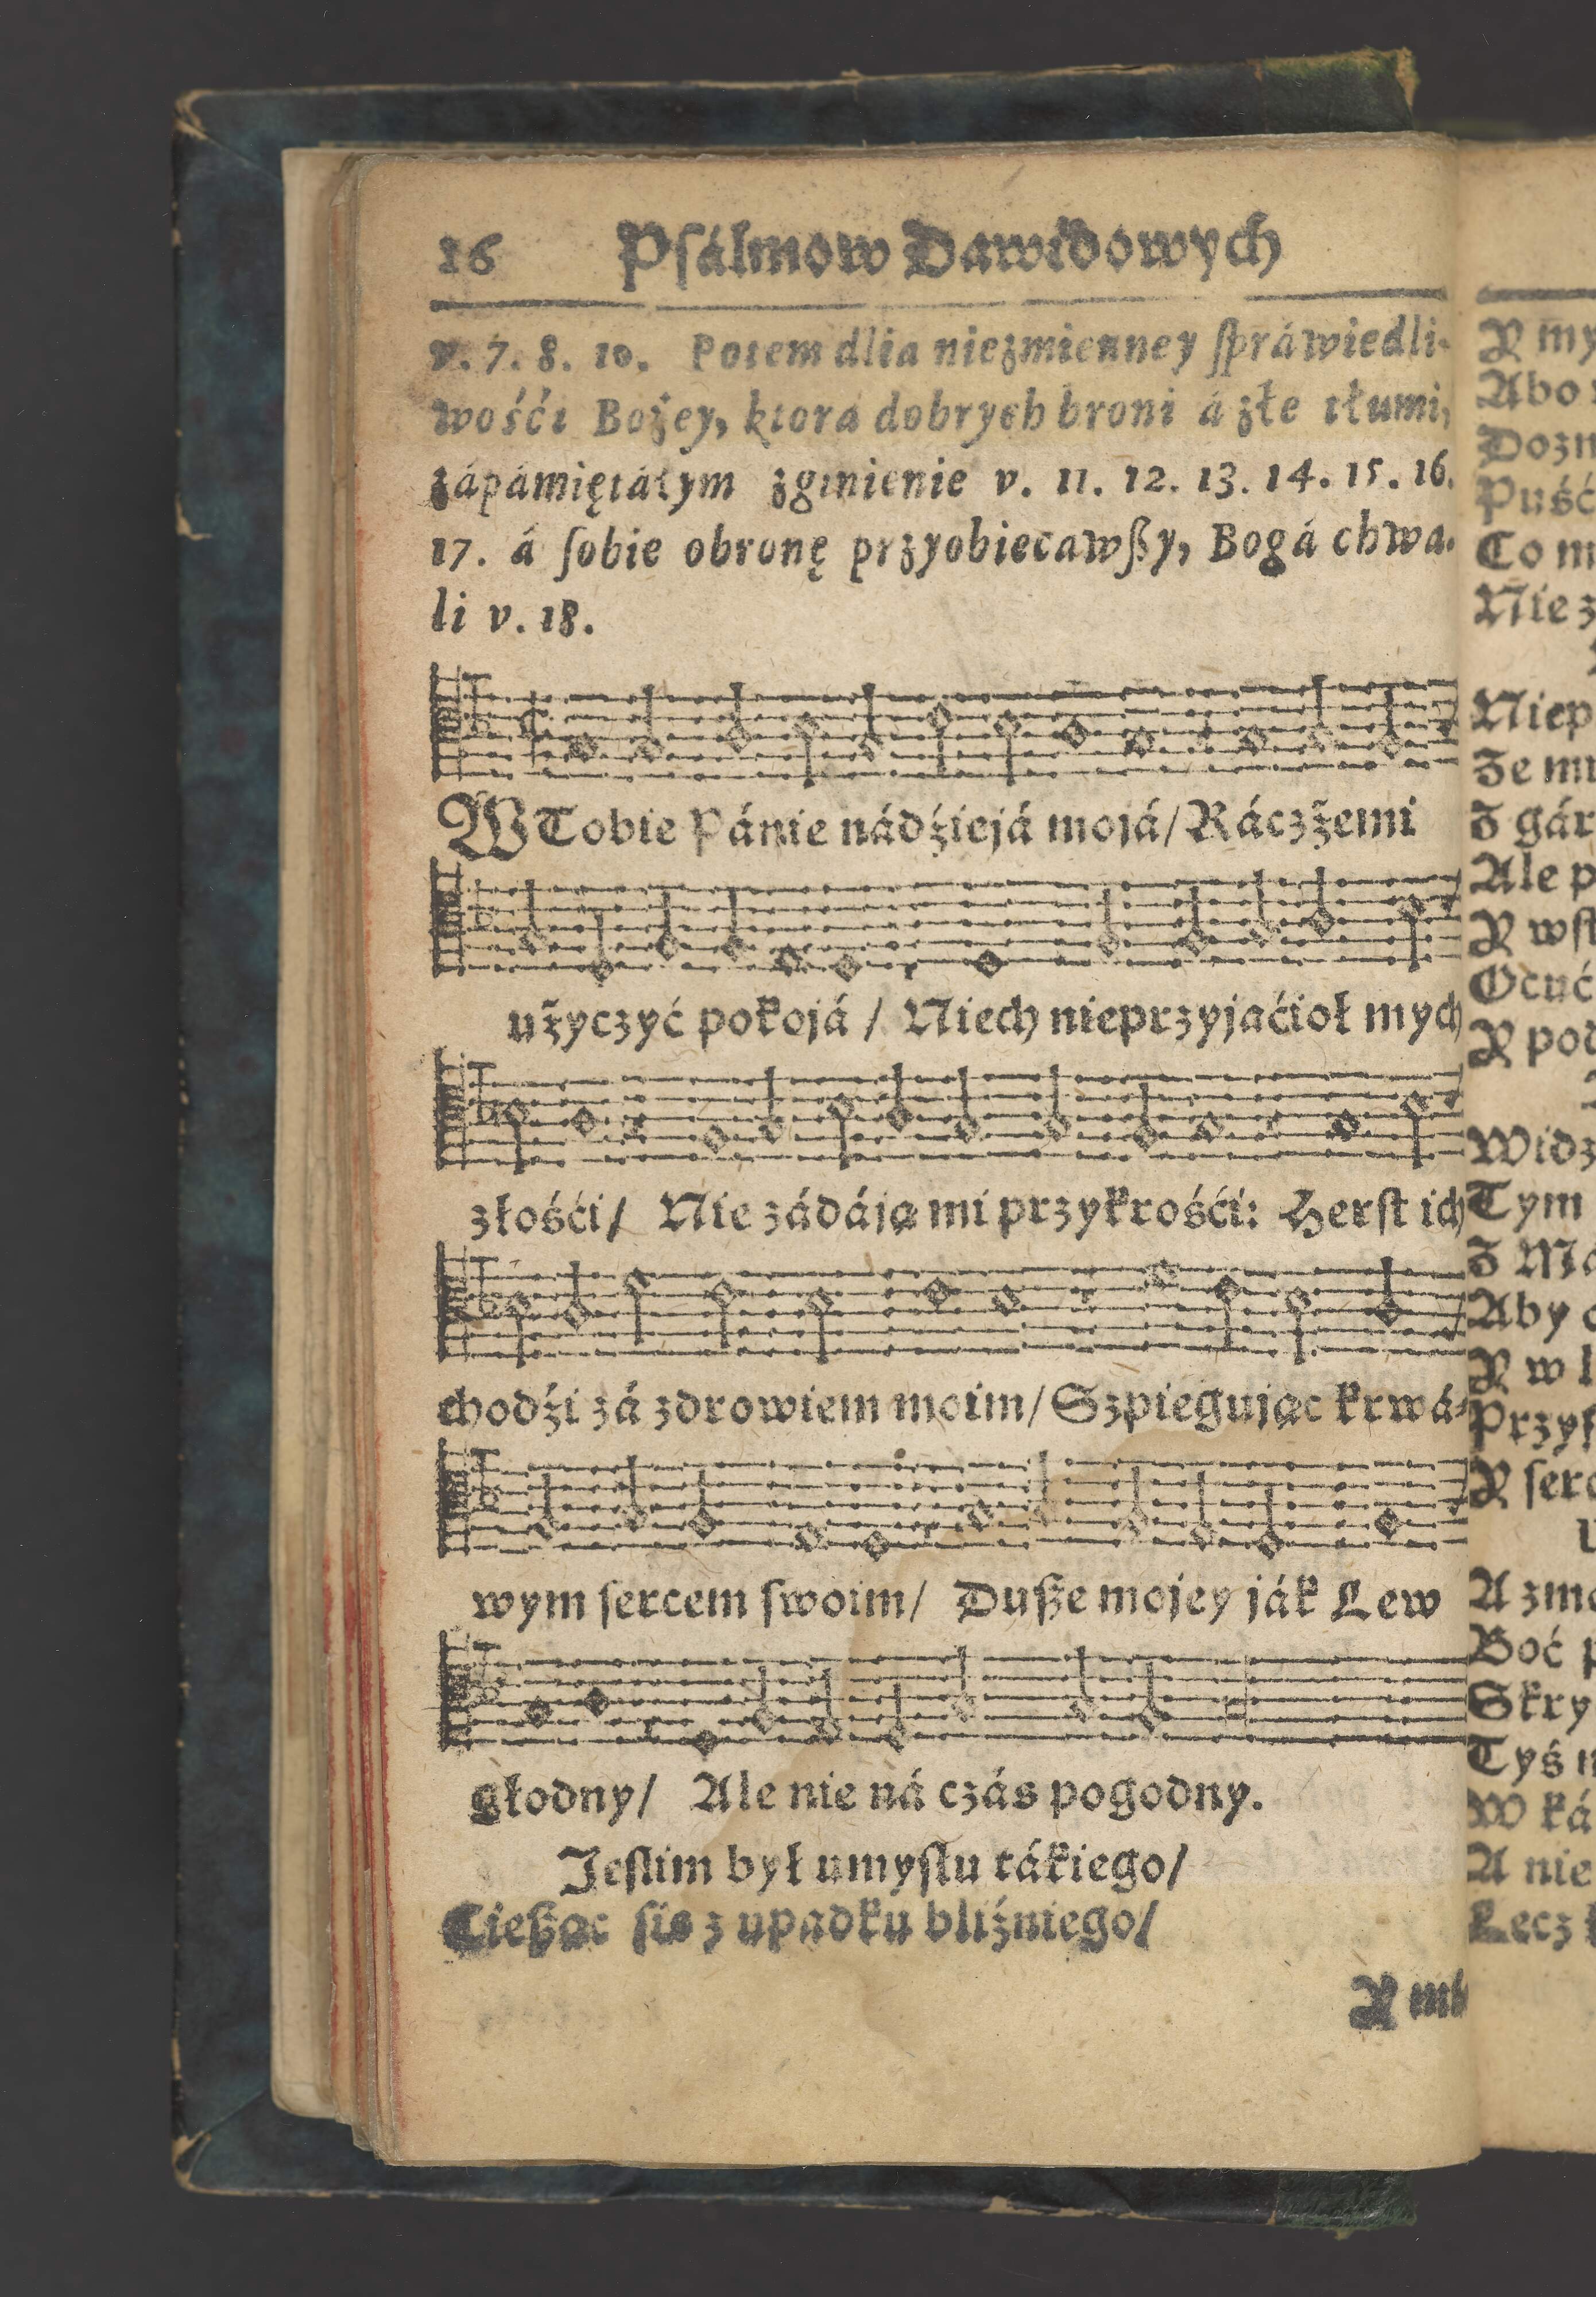 16 Psálmow Dawidowych
v. 7. 8. 10. Potem dlia niezmienney ſpráwiedli-
wośći Bożey, ktora dobrych broni á złe tłumi,
zápámiętáłym zginienie v. 11. 12. 13. 14. 15. 16.
17. á ſobie obronę przyobiecawßy, Bogá chwa-
li v. 18.
W Tobie Pánie nádźiejá mojá/ Ráczżemi
użyczyć pokojá / Niech nieprzyjaćioł mych
złośći/ Nie zádáją mi przykrośći: Herſt ich
chodźi zá zdrowiem moim/ Szpiegując krwá-
wym ſercem ſwoim/ Dußze mojey ják Lew
głodny/ Ale nie ná czás pogodny.
Jeſlim był umyſlu tákiego/
Cießąc ſię z upadku bliźniego/
Y my
Abo
Dozn
Puść
Co m
Nie z
Niep
Że mu
Z gár
Ale p
Y wſt
Ocuć
Y pod
Widz
Tym
Z Ma
Aby
Y w l
Przyk
Y ſerc
A zmo
Boć p
Skry
Tyś n
W ká
A nie
Lecz